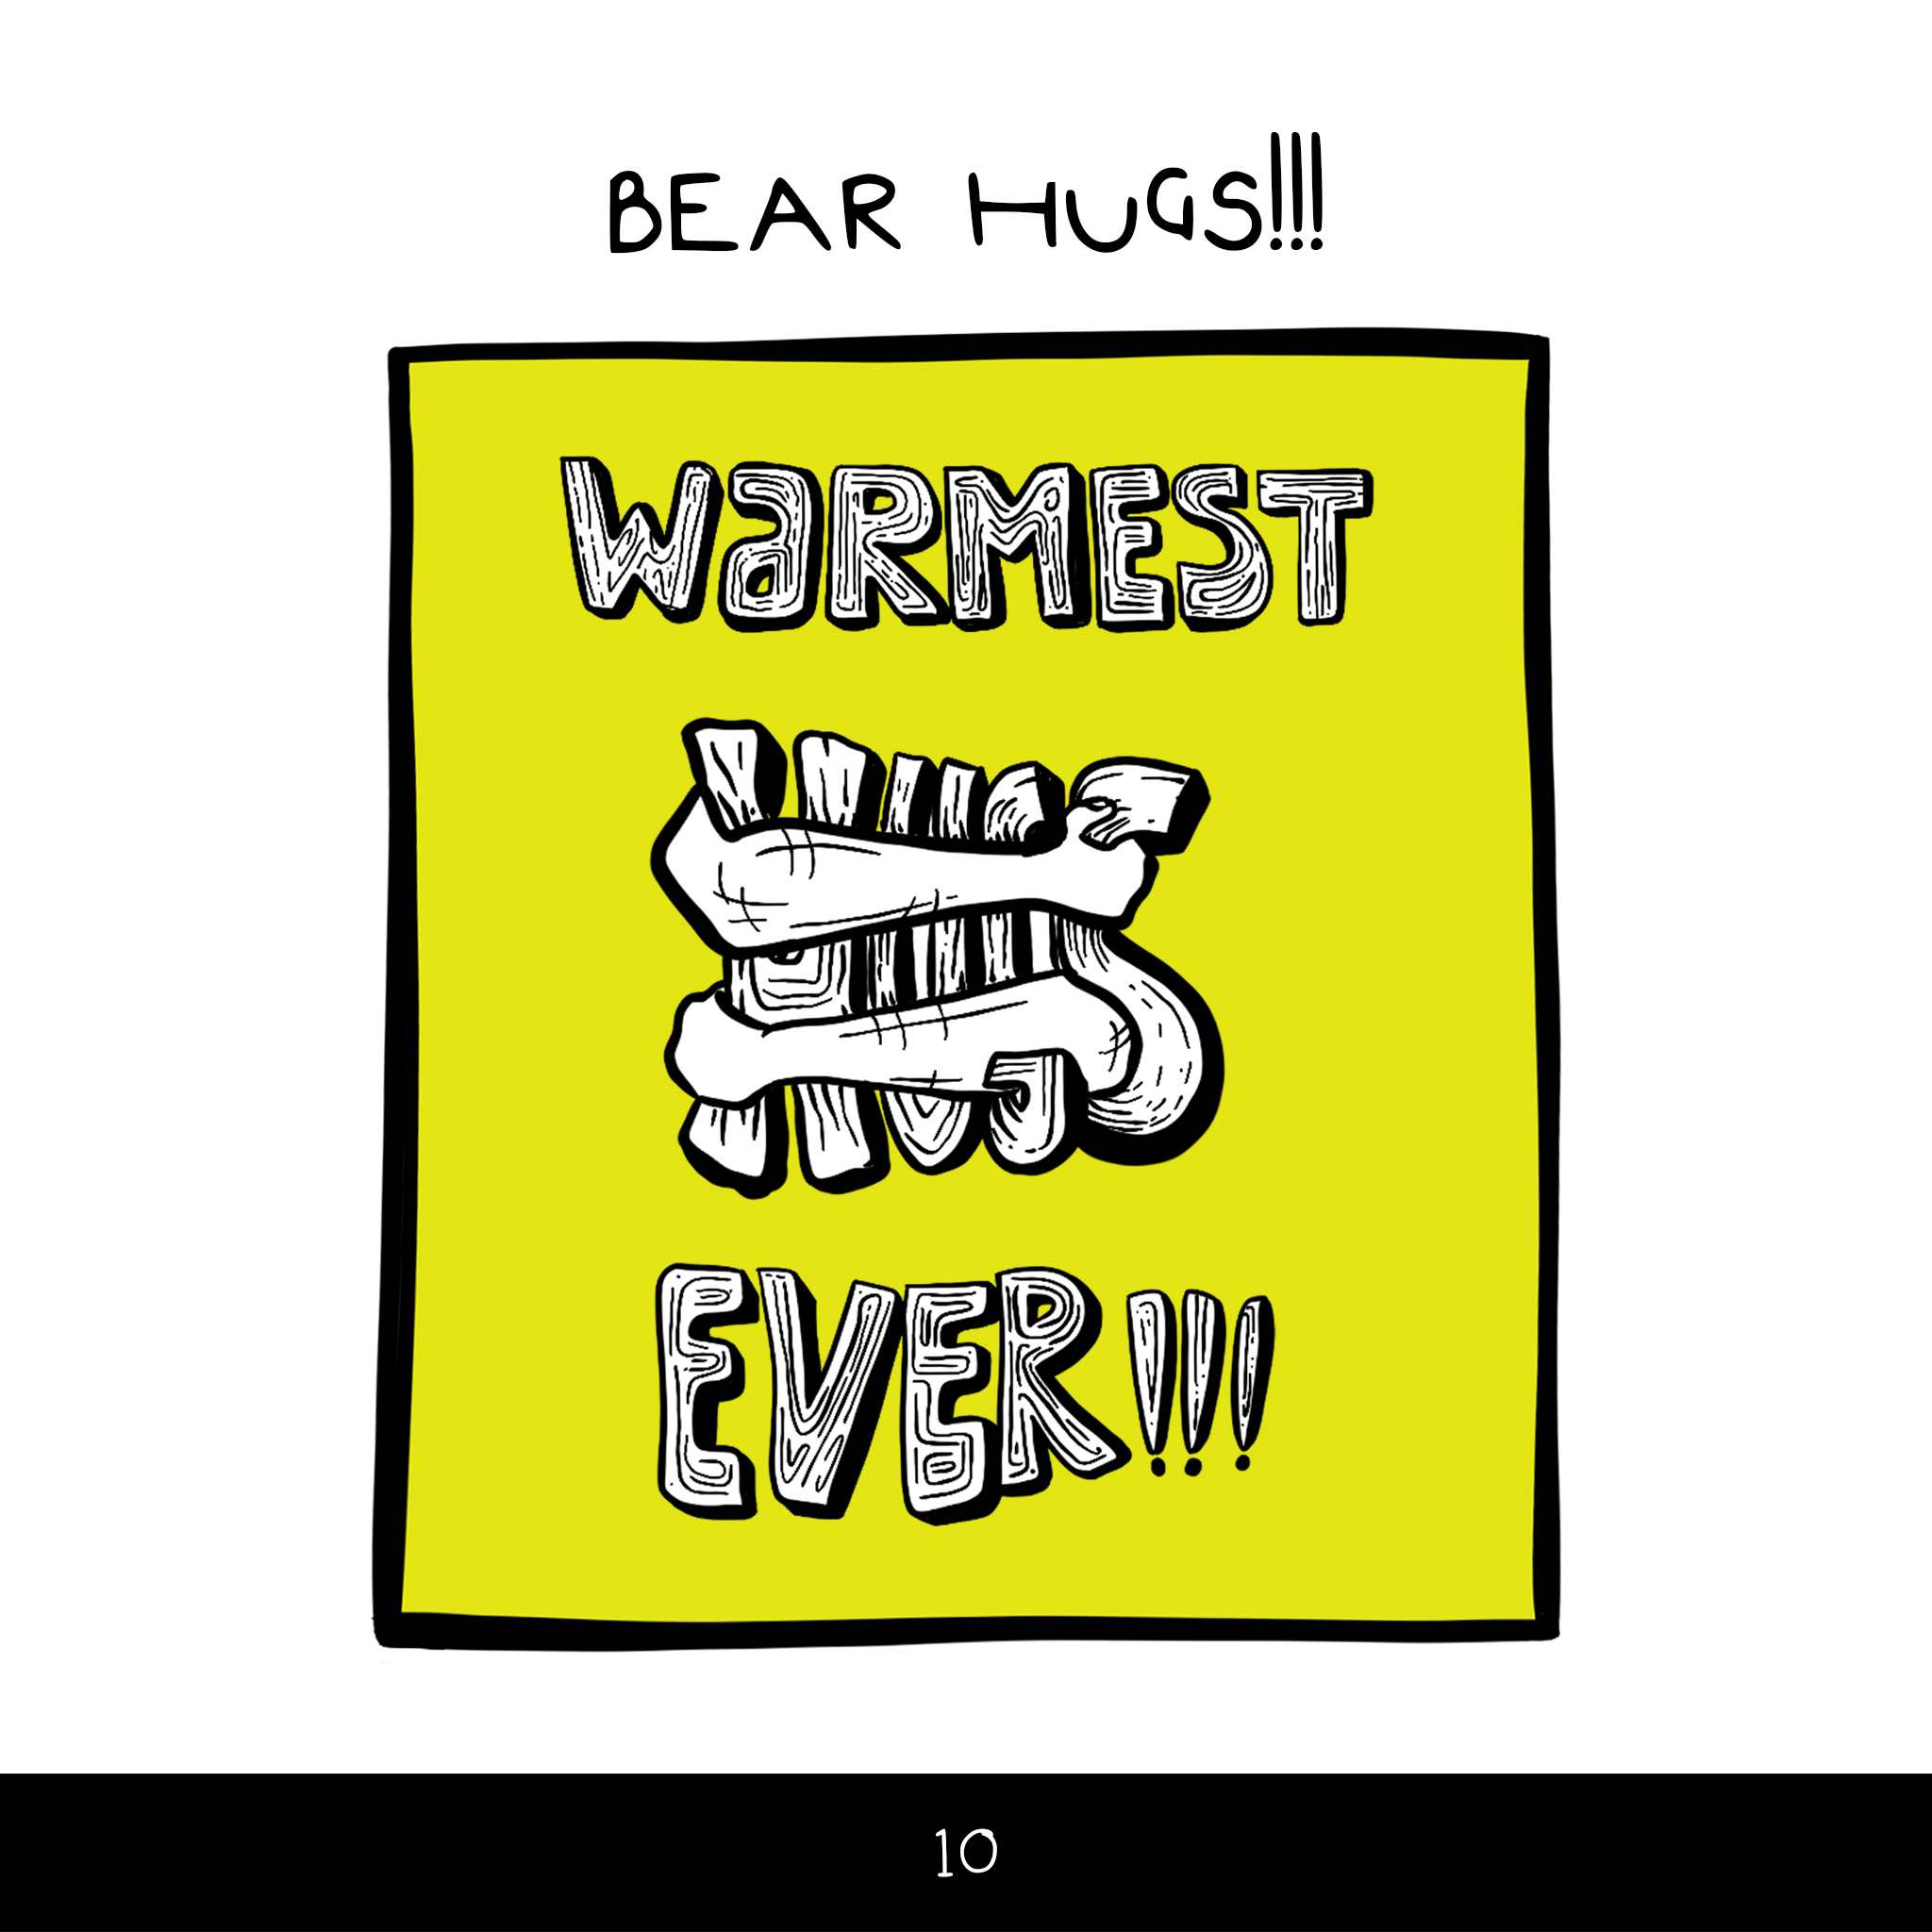 BEAR HUGS!!!
WaRMEST
HUGS
EVER!!!
10